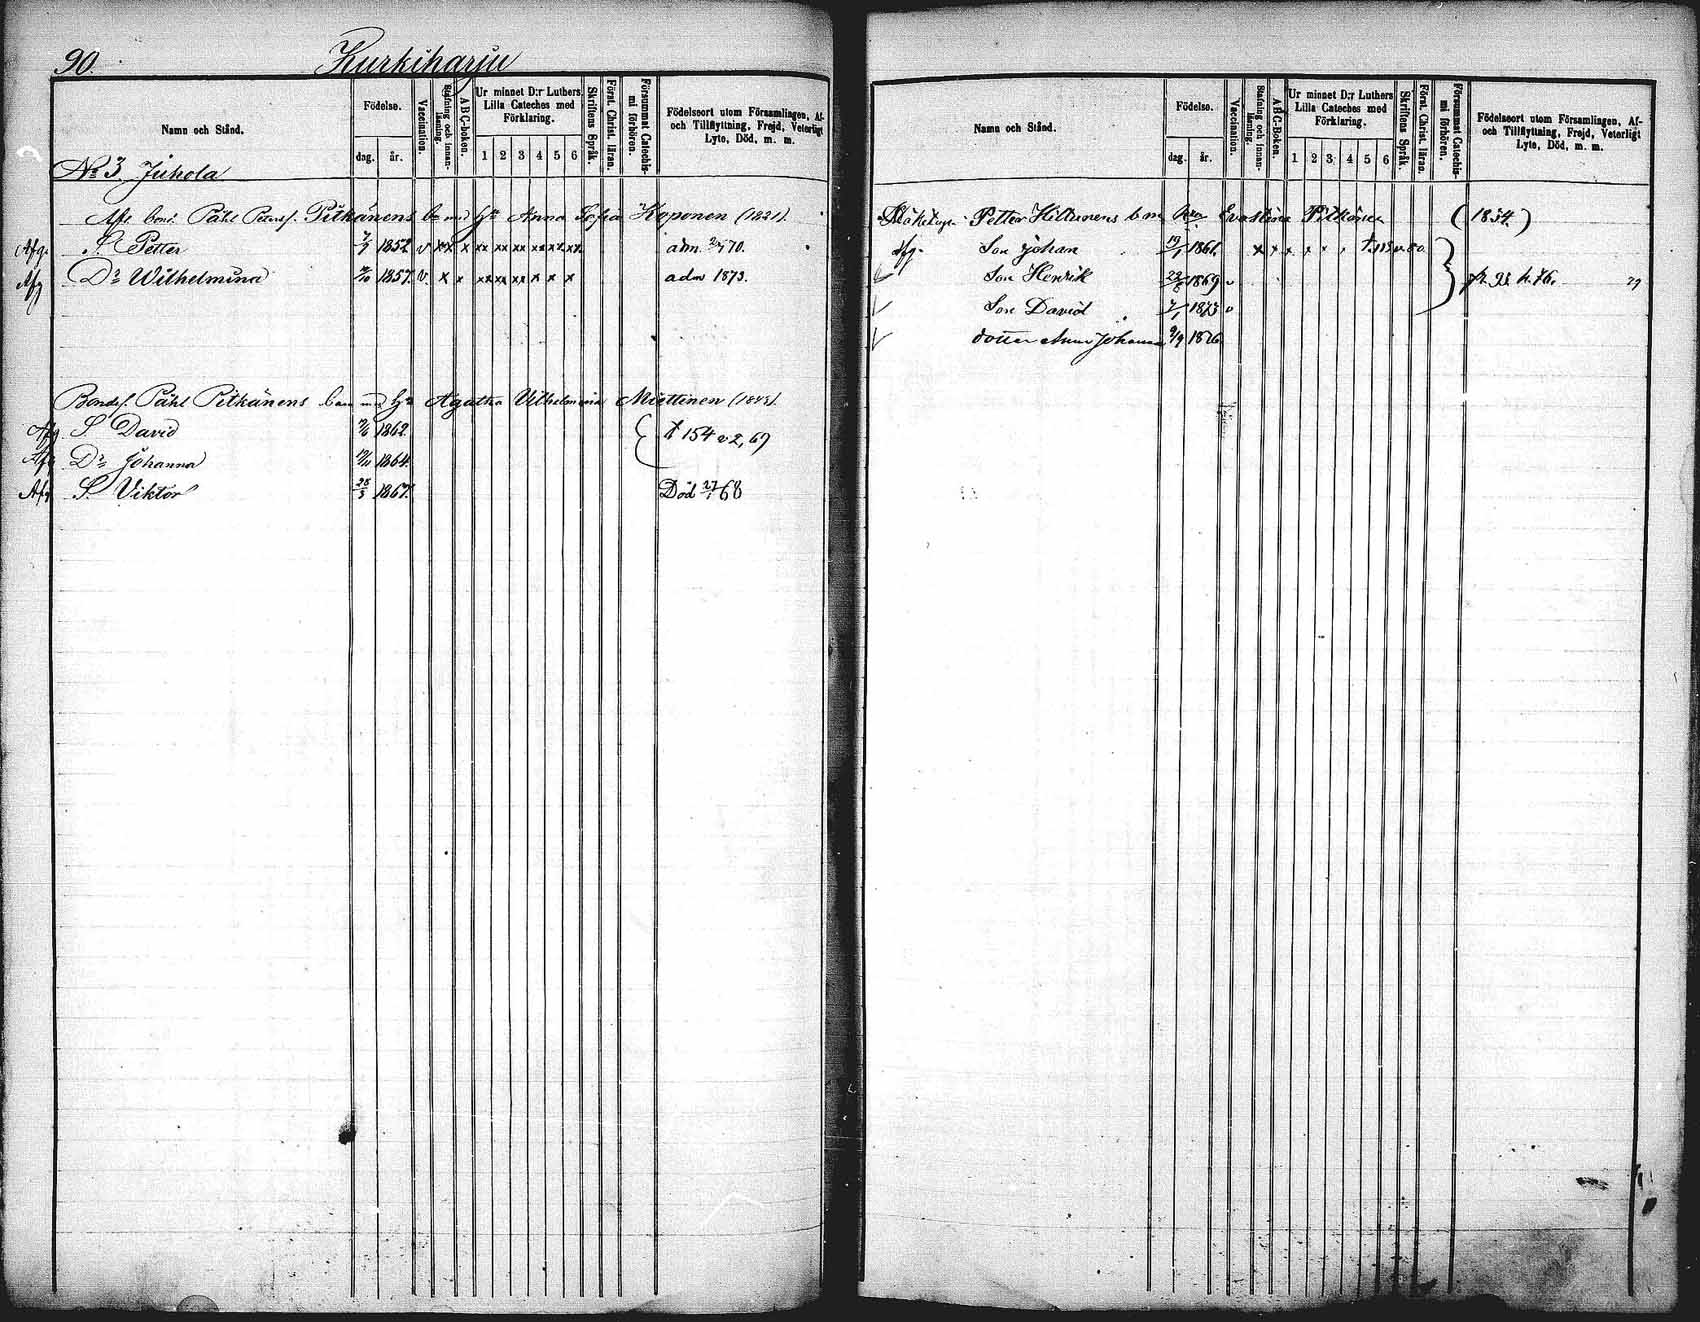 90. Kurkiharju
Namn och Stånd.
Födelse.
dag. år.
Vaccination.
Stafning och innanläsning.
ABC-boken.
Ur minnet D:r Luthers Lilla Cateches med Förklaring.
1 2 3 4 5 6
Skriftens Språk.
Först. Christ. läran.
Försummat Catechismi förhören.
Födelseort utom Församlingen, Af- och Tillflyttning, Frejd, Veterligt Lyte, Död, m. m.
No 3 Juhola
Afl. bond. Påhl Peterss. Pitkänens bn med Hu Anna Sofia Koponen (1821).
Afg. S. Petter 1852 v xx x xx xx xx xx xx xx adm. 70.
Afg Dr Wilhelmina 1857. v. x x xx xx xx x x x adm 1873.
Bondes. Påhl Pitkänens barn med Hu Agatha Vilhelmina Miettinen
Afg. S David 1862. { 154 v 2, 69
Afg Dr Johanna 1864.
Afg S. Viktor 28/3 1867. Död 27/1 68
Namn och Stånd.
Födelse.
dag. år.
Vaccination.
Stafning och innanläsning.
ABC-Boken.
Ur minnet D:r Luthers Lilla Cateches med Förklaring.
1 2 3 4 5 6
Skriftens Språk.
Först. Christ. läran.
Försummat Catechismi förhören.
Födelseort utom Församlingen, Af- och Tillflyttning, Frejd, Veterligt Lyte, Död, m. m.
Petter Hiltunens b m Evastina Pitkänen (1834.)
Afg. Son Johan 1866. x x x x x x
Son Henrik 1869 v } 29
Son David 1873 v
dotter Anna Johanna 9/9 1876